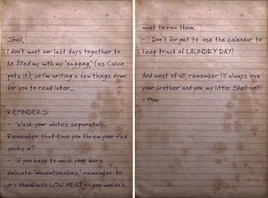 Shell,
I don't want our last days together to
be filled my with my "nagging" (as Calvin
puts it), so I'm writing a few things down
for you to read later...
REMINDERS:
- Wash your whites separately.
Remember that time you threw your red
socks in?
- If you have to wash your more
delicate "unmentionables," remember to
dry them with LOW HEAT--you wouldn't
want to ruin them.
- Don't forget to use the calendar to
keep track of LAUNDRY DAY!
And most of all, remember I'll always love
your brother and you, my little Shell-bell!
- Mom